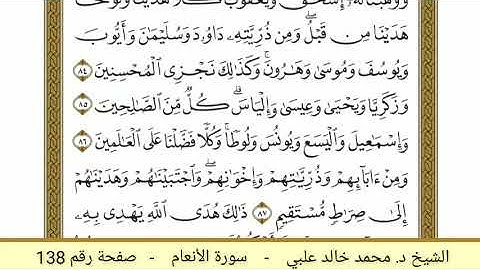 ووهبنا له إسحق ويعقوب كلا هدينا ونوحا
هَدَيْنَا مِن قَبْلُ وَمِن ذُرِّيَّتِهِ دَاوُدَ وَسُلَيْمَٰنَ وَأَيُّوبَ
وَيُوسُفَ وَمُوسَىٰ وَهَٰرُونَ وَكَذَٰلِكَ نَجْزِى ٱلْمُحْسِنِينَ ٨٤
وَزَكَرِيَّا وَيَحْيَىٰ وَعِيسَىٰ وَإِلْيَاسَ كُلٌّ مِّنَ ٱلصَّٰلِحِينَ ٨٥
وَإِسْمَٰعِيلَ وَٱلْيَسَعَ وَيُونُسَ وَلُوطًا وَكُلًّا فَضَّلْنَا عَلَى ٱلْعَٰلَمِينَ ٨٦
وَمِنْ ءَابَآئِهِمْ وَذُرِّيَّٰتِهِمْ وَإِخْوَٰنِهِمْ وَٱجْتَبَيْنَٰهُمْ وَهَدَيْنَٰهُمْ
إِلَىٰ صِرَٰطٍ مُّسْتَقِيمٍ ٨٧ ذَٰلِكَ هُدَى ٱللَّهِ يَهْدِى بِهِۦ
الشيخ د. محمد خالد علبي - سورة الأنعام - صفحة رقم 138